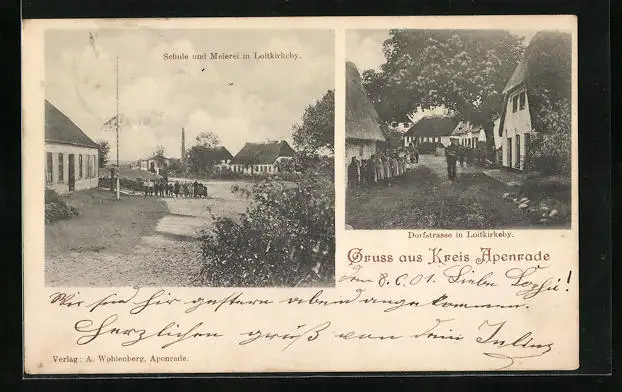 Schule und Meierei in Loitkirkeby.
Dorfstrasse in Loitkirkeby.
Gruss aus Kreis Apenrade
den 8.6.01. Liebe Sophie!
Wir sind hir gestern abend angekommen.
Herzlichen gruß von dein
Verlag: A. Wohlenberg, Apenrade.